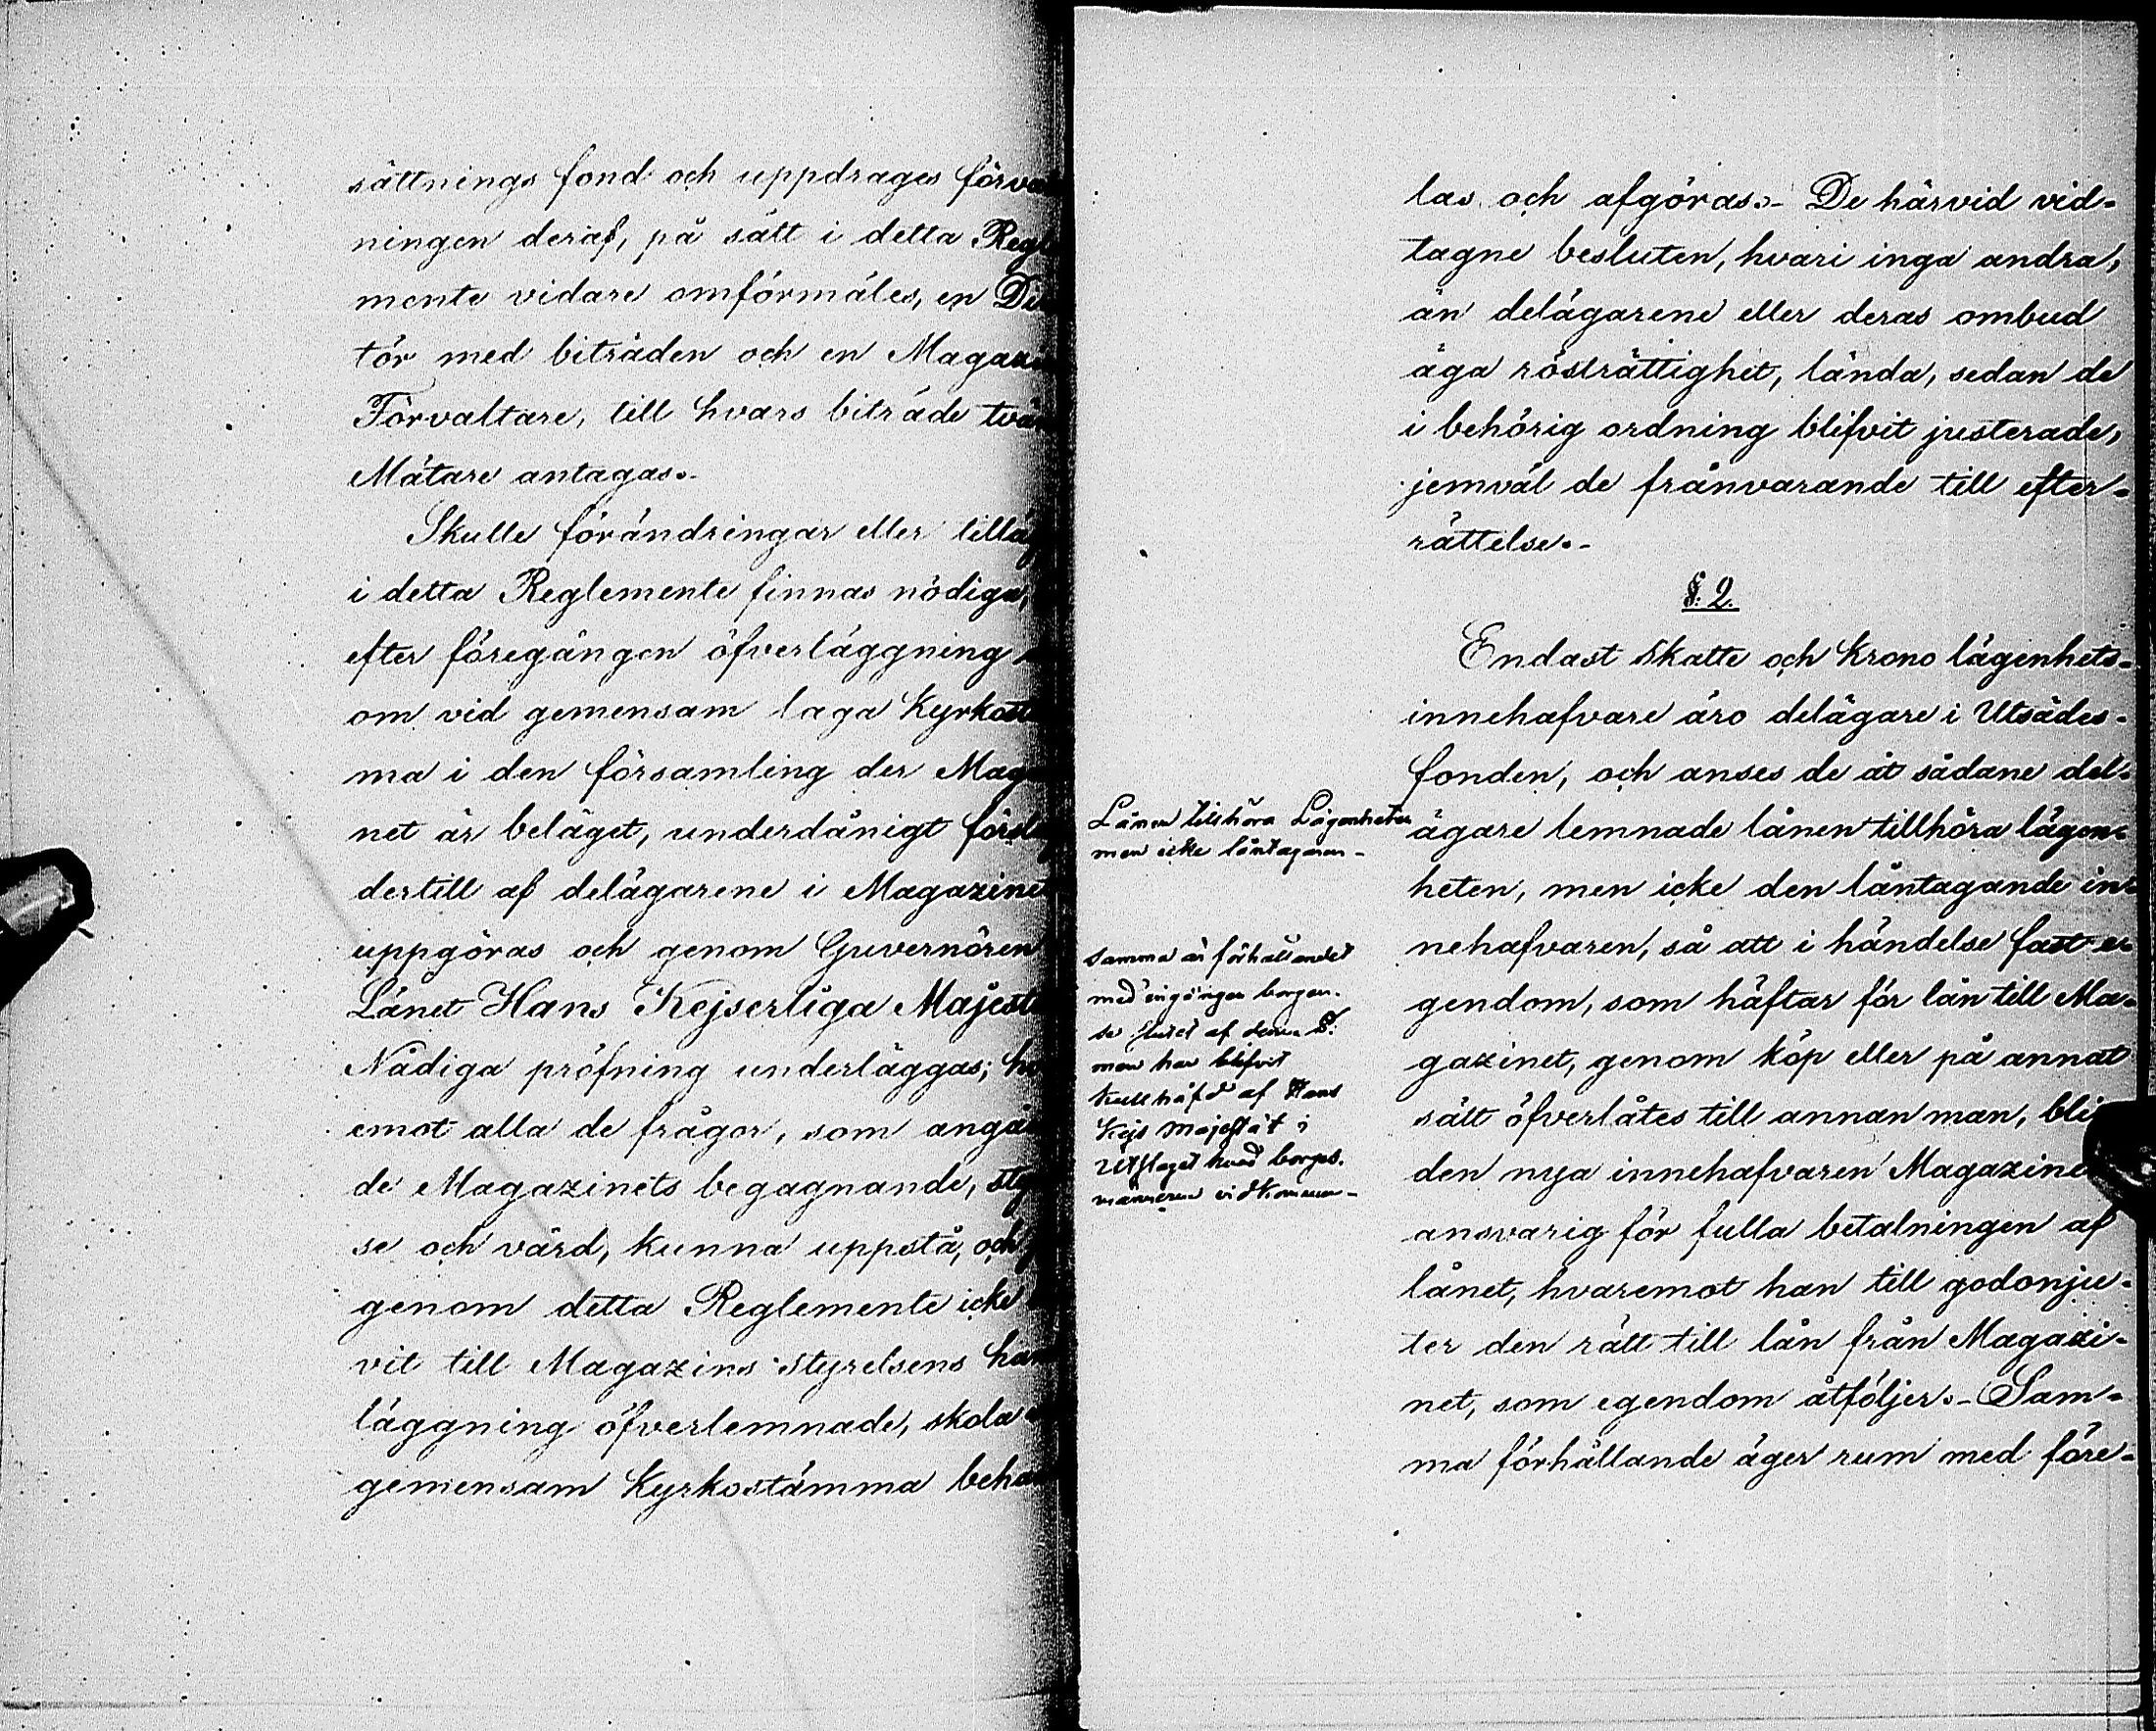 sättnings fond och uppdrages förva
ningen deraf, på sätt i detta Regl
mente vidare omförmäles, en Di
tör med biträden och en Magazi
Förvaltare, till hvars biträde två
Mätare antagas.
Skulle förändringar eller tilläg
i detta Reglemente finnas nödiga,
efter föregången öfverläggning
om vid gemensam laga Kyrkostä
ma i den församling der Mag
net är beläget, underdånigt försla
dertill af delägarene i Magazinet
uppgöras och genom Guvernören
Länet Hans Kejserliga Majestä
Nådiga pröfning underläggas; hv
emot alla de frågor, som angå
de Magazinets begagnande, sty
se och vård, kunna uppstå, och
genom detta Reglemente icke
vit till Magazins Styrelsens han
läggning öfverlemnade, skola
gemensam Kyrkostämma behan
las och afgöras.- De härvid vid-
tagne besluten, hvari inga andra,
än delägarene eller deras ombud
äga rösträttighet, lända, sedan de
i behörig ordning blifvit justerade,
jemväl de frånvarande till efter-
rättelse.-
§. 2.
Endast Skatte och Krono lägenhets-
innehafvare äro delägare i Utsädes-
fonden, och anses de åt sådane del-
ägare lemnade lånen tillhöra lägen-
heten, men icke den låntagande in-
nehafvaren, så att i händelse fast e-
gendom, som häftar för lån till Ma-
gazinet, genom köp eller på annat
sätt öfverlåtes till annan man, bli
den nya innehafvaren Magazine
ansvarig för fulla betalningen af
lånet, hvaremot han till godonju-
ter den rätt till lån från Magazi-
net, som egendom åtföljer.- Sam-
ma förhållande äger rum med före-
Lånen tillhöra Lägenheten
men icke låntagaren-
Samma är förhållandet
med ingången borgen.
se slutet af denna §:
men har blifvit
Kullhäfd af Hans
Kejs Majestät i
Utslaget hvad borges.
männerne vidkommer-